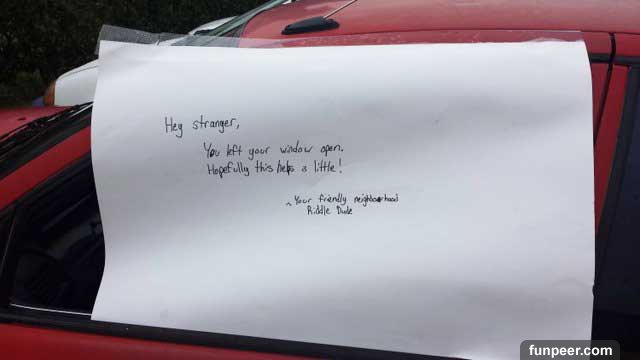 Hey stranger,
You left your window open.
Hopefully this helps a little!
~ Your friendly neighbourhood
Riddle Dude
funpeer.com